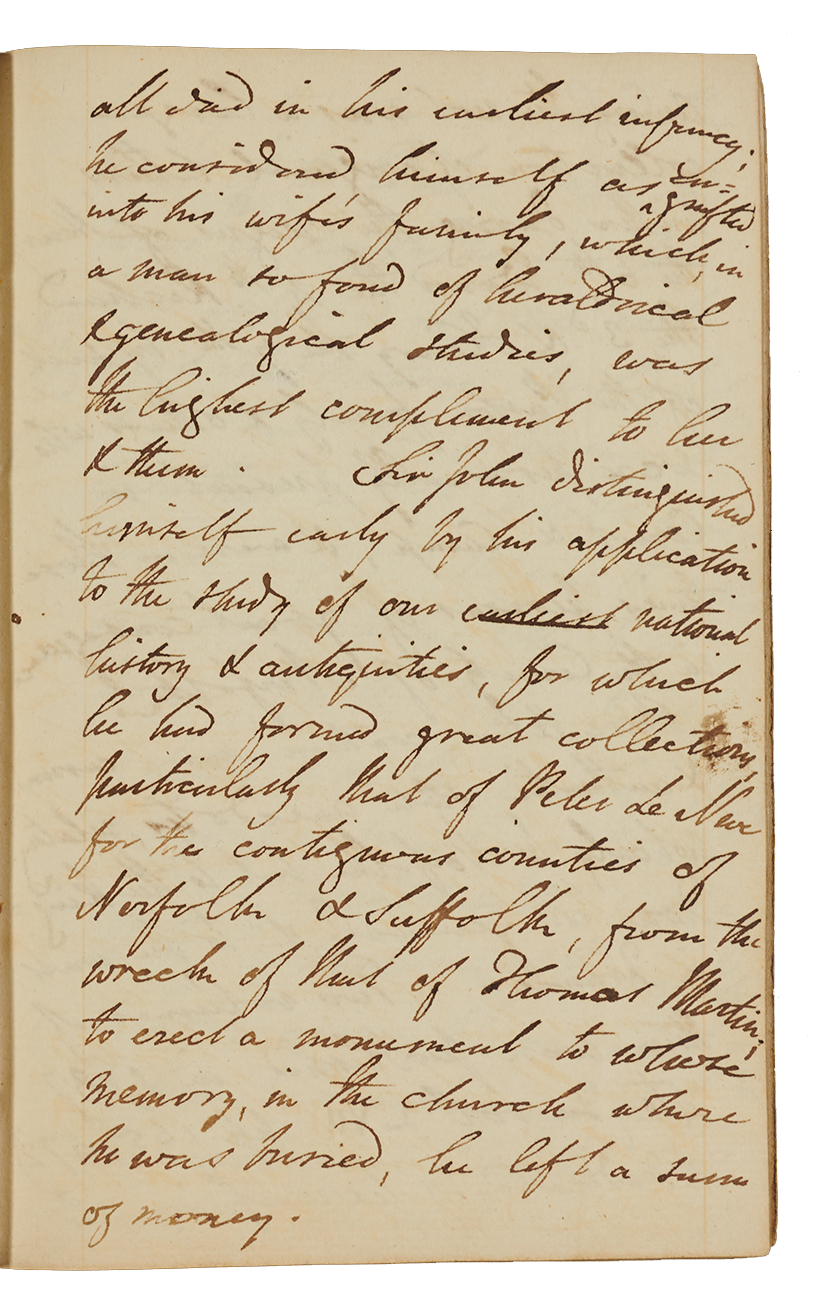 all died in his earliest infancy;
he considered himself as en=
grafted
into his wife's family, which, in
a man so fond of heraldrical
& genealogical studies, was
the highest complement to her
& them. Sir John distinguished
himself early by his application
to the study of our earliest national
history & antiquities, for which
he had formed great collections,
particularly that of Peter Le Neve
for the contiguous counties of
Norfolk & Suffolk, from the
wreck of that of Thomas Martin;
to erect a monument to whose
memory, in the church where
he was buried, he left a sum
of money.